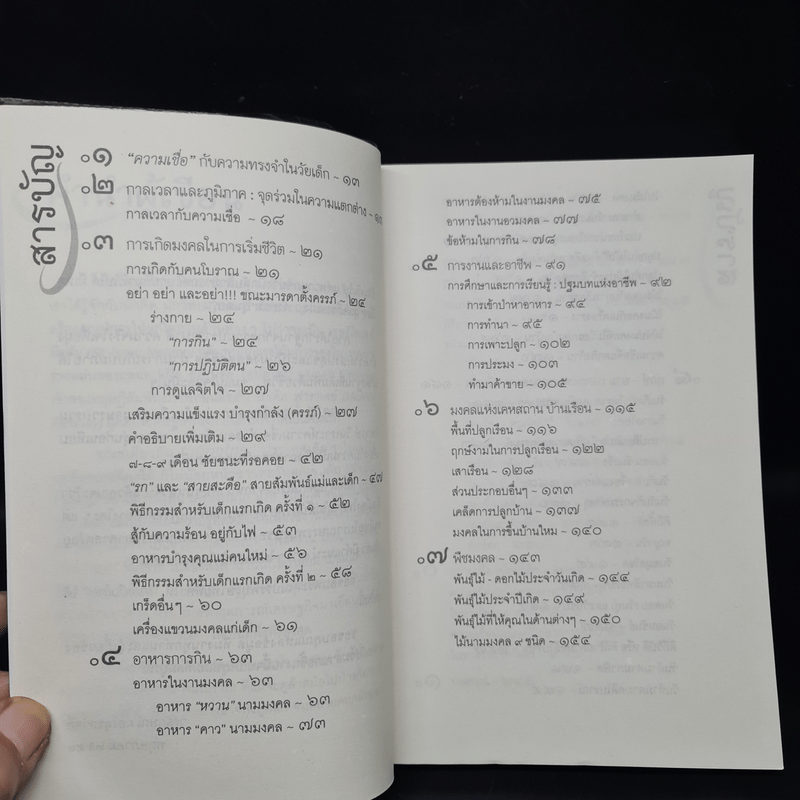 สารบัญ
๐๑ “ความเชื่อ” กับความทรงจำในวัยเด็ก ~ ๑๓
๐๒ กาลเวลาและภูมิภาค : จุดร่วมในความแตกต่าง ~
กาลเวลากับความเชื่อ ~ ๑๘
๐๓ การเกิดมงคลในการเริ่มชีวิต ~ ๒๑
การเกิดกับคนโบราณ ~ ๒๑
อย่า อย่า และอย่า!!! ขณะมารดาตั้งครรภ์ ~ ๒๔
ร่างกาย ~ ๒๔
“การกิน” ~ ๒๔
“การปฏิบัติตน” ~ ๒๖
การดูแลจิตใจ ~ ๒๗
เสริมความแข็งแรง บำรุงกำลัง (ครรภ์) ~ ๒๗
คำอธิบายเพิ่มเติม ~ ๒๙
๗-๘-๙ เดือน ชัยชนะที่รอคอย ~ ๔๒
“รก” และ “สายสะดือ” สายสัมพันธ์แม่และเด็ก ~ ๔๗
พิธีกรรมสำหรับเด็กแรกเกิด ครั้งที่ ๑ ~ ๕๒
สู้กับความร้อน อยู่กับไฟ ~ ๕๓
อาหารบำรุงคุณแม่คนใหม่ ~ ๕๖
พิธีกรรมสำหรับเด็กแรกเกิด ครั้งที่ ๒ ~ ๕๘
เกร็ดอื่นๆ ~ ๖๐
เครื่องแขวนมงคลแก่เด็ก ~ ๖๑
๐๔ อาหารการกิน ~ ๖๓
อาหารในงานมงคล ~ ๖๓
อาหาร “หวาน” นามมงคล ~ ๖๓
อาหาร “คาว” นามมงคล ~ ๗๓
อาหารต้องห้ามในงานมงคล ~ ๗๕
อาหารในงานอวมงคล ~ ๗๗
ข้อห้ามในการกิน ~ ๗๘
๐๕ การงานและอาชีพ ~ ๙๑
การศึกษาและการเรียนรู้ : ปฐมบทแห่งอาชีพ ~ ๙๒
การเข้าป่าหาอาหาร ~ ๙๔
การทำนา ~ ๙๕
การเพาะปลูก ~ ๑๐๒
การประมง ~ ๑๐๓
ทำมาค้าขาย ~ ๑๐๕
๐๖ มงคลแห่งเคหสถาน บ้านเรือน ~ ๑๑๕
พื้นที่ปลูกเรือน ~ ๑๑๖
ฤกษ์งามในการปลูกเรือน ~ ๑๒๒
เสาเรือน ~ ๑๒๘
ส่วนประกอบอื่นๆ ~ ๑๓๓
เคล็ดการปลูกบ้าน ~ ๑๓๗
มงคลในการขึ้นบ้านใหม่ ~ ๑๔๐
๐๗ พืชมงคล ~ ๑๔๓
พันธุ์ไม้ - ดอกไม้ประจำวันเกิด ~ ๑๔๔
พันธุ์ไม้ประจำปีเกิด ~ ๑๔๙
พันธุ์ไม้ที่ให้คุณในด้านต่างๆ ~ ๑๕๐
ไม้นามมงคล ๙ ชนิด ~ ๑๕๔